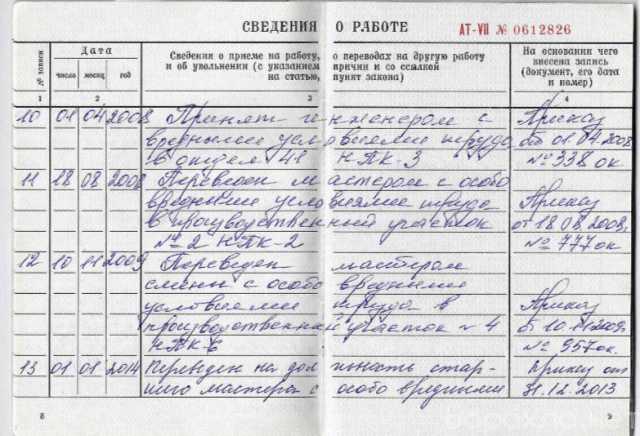 СВЕДЕНИЯ О РАБОТЕ АТ-VII № 0612826
№ записи
Дата
число месяц год
Сведения о приеме на работу, о переводах на другую работу
и об увольнении (с указанием причин и со ссылкой
на статью, пункт закона)
На основании чего
внесена запись
(документ, его дата
и номер)
1 2 3 4
10 01 04 2008 Принят инженером с Приказ
вредными условиями труда от 01.04.2008
в отдел 41 НПК-3 № 338 ок
11 18 08 2008 Переведен мастером с особо
вредными условиями труда Приказ
в производственный участок от 18.08.2008,
№ 2 НПК-2 № 777 ок
12 10 11 2009 Переведен мастером
смены с особо вредными
условиями труда в Приказ
производственный участок № 4 от 10.11.2009
НПК-6 № 957 ок.
13 01 01 2014 Переведен на должность стар- Приказ от
шего мастера с особо вредными 31.12.2013
8 9